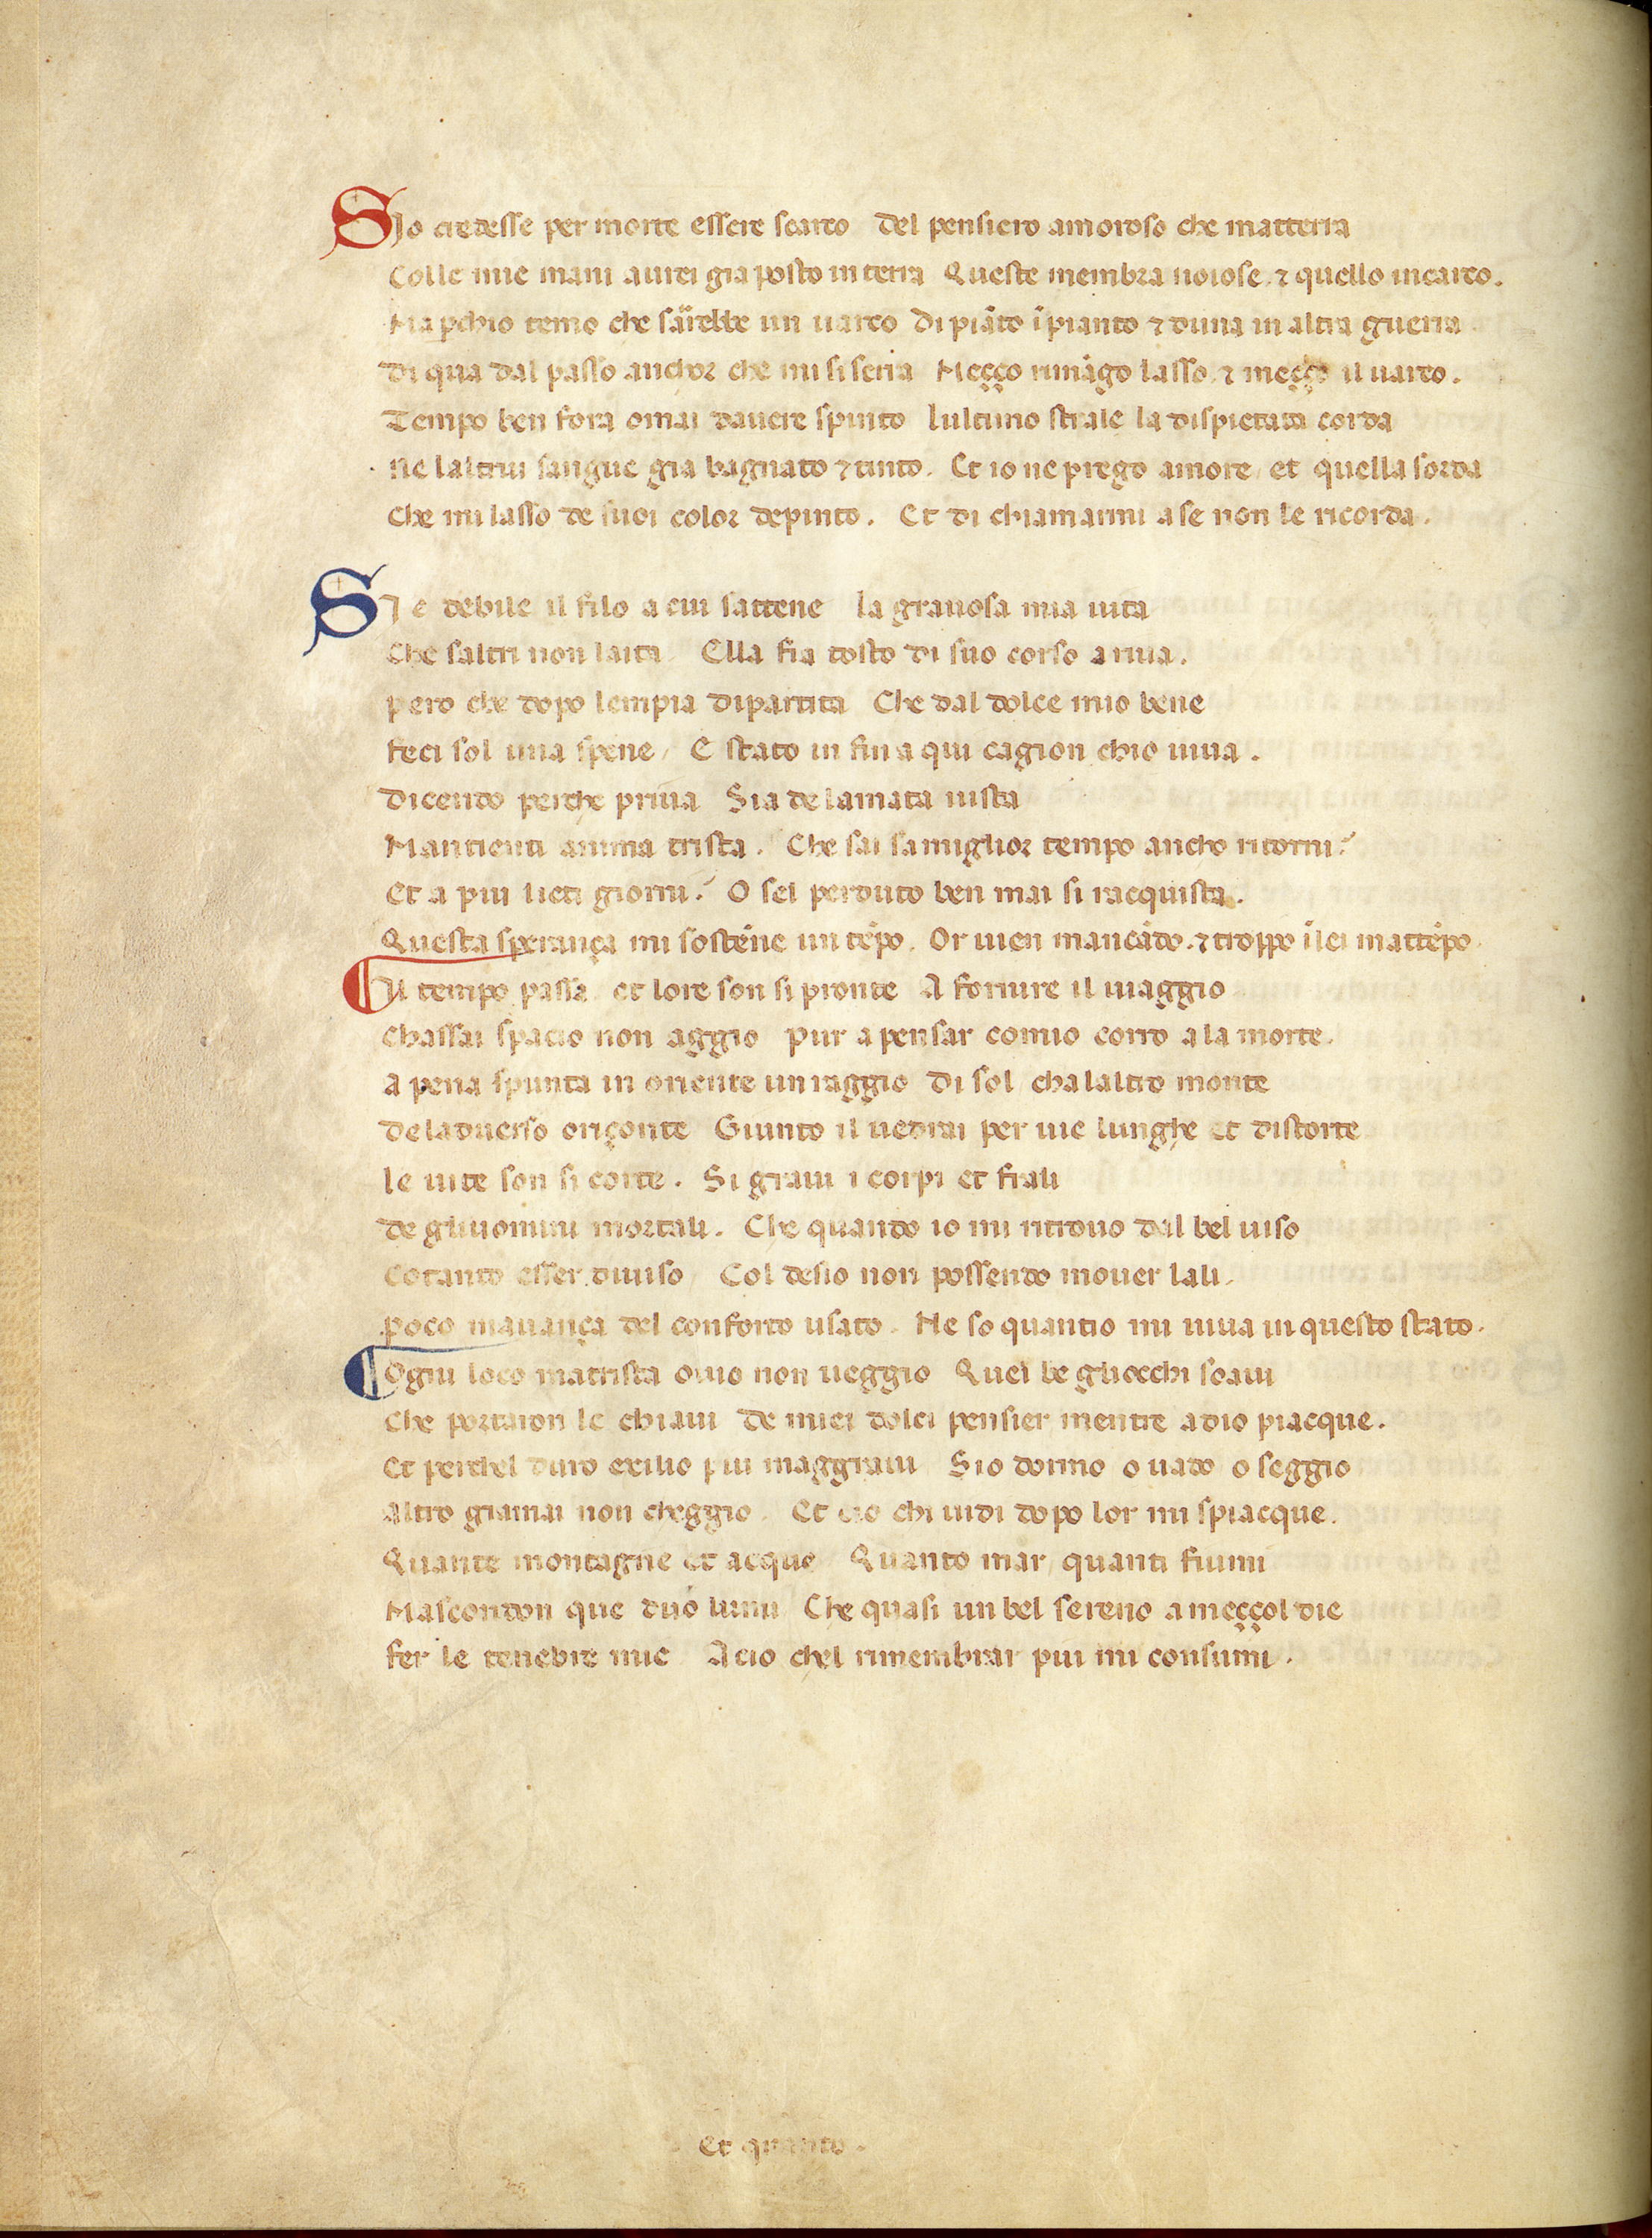 SJo credesse per morte essere scarco del pensiero amoroso che matterra
Colle mie mani aurei gia posto in terra Queste membra noiose. ⁊ quello incarco.
Ma pchio temo che sarrebbe un uarco Di piãto ĩ pianto ⁊ duna in altra guerra
di qua dal passo anchor che mi si serra Meçço rimãgo lasso. ⁊ meçço il uarco.
Tempo ben fora omai dauere spinto lultimo strale la dispietata corda
ne laltrui sangue gia bagnato ⁊ tinto. Et io ne prego amore et quella sorda
che mi lasso de suoi color depinto. Et di chiamarmi a se non le ricorda.
SJ e debile il filo a cui sattene la grauosa mia uita
Che saltri non laita Ella fia tosto di suo corso a riua.
pero che dopo lempia dipartita Che dal dolce mio bene
feci sol una spene / E stato in fin a qui cagion chio uiua.
dicendo perche priua Sia de lamata uista
Mantienti anima trista. Che sai sa miglior tempo ancho ritorni?
Et a piu lieti giorni? O sel perduto ben mai si racquista.
Questa sperança mi sostẽne un tẽpo. Or uien mancãdo. ⁊ troppo ĩ lei mattẽpo.
Il tempo passa et lore son si pronte A fornire il uiaggio
chassai spacio non aggio pur a pensar comio corro a la morte.
a pena spunta in oriente un raggio di sol cha laltro monte
de laduerso oriçonte Giunto il uedrai per uie lunghe et distorte
le uite son si corte. Si graui i corpi et frali
de gliuomini mortali. Che quando io mi ritrouo dal bel uiso
cotanto esser diuiso / Col desio non possendo mouer lali.
poco mauança del conforto usato. Ne so quantio mi uiua in questo stato.
Ogni loco mattrista ouio non ueggio Quei be gliocchi soaui
che portaron le chiaui de miei dolci pensier mentre a dio piacque.
Et perchel duro exilio piu maggraui Sio dormo o uado o seggio
altro giamai non cheggio. Et cio chi uidi dopo lor mi spiacque.
Quante montagne et acque Quanto mar / quanti fiumi
Mascondon que duo lumi Che quasi un bel sereno a meççol die
fer le tenebre mie A cio chel rimembrar piu mi consumi.
Et quanto.